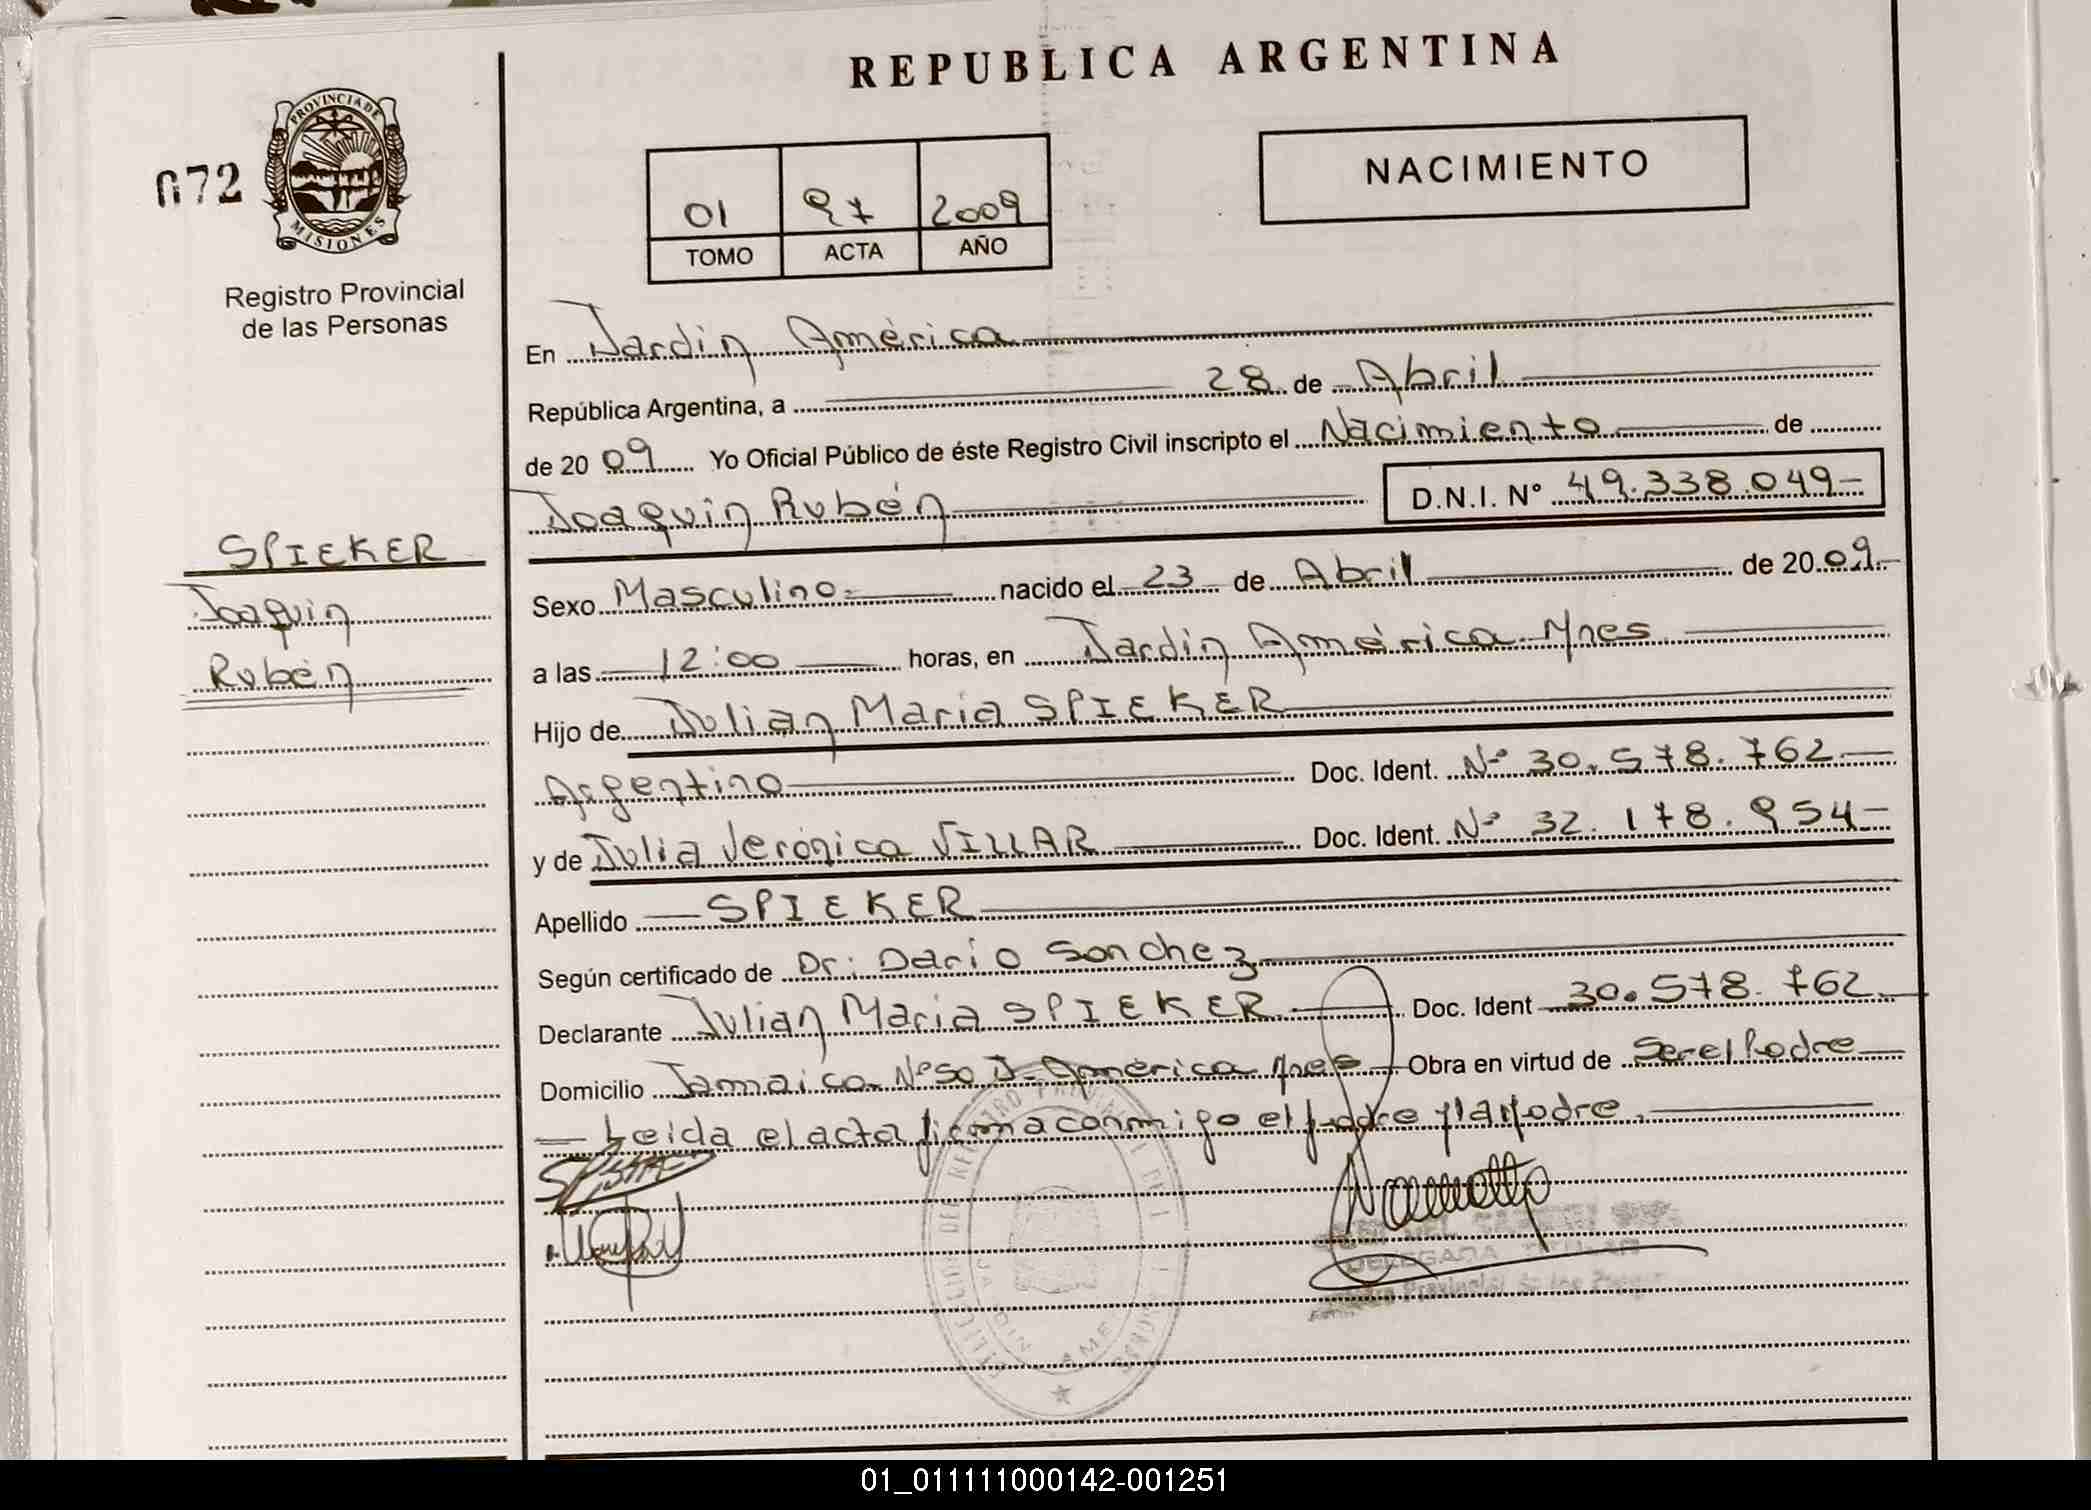 REPUBLICA ARGENTINA
072
PROVINCIA DE
MISIONES
Registro Provincial
de las Personas
NACIMIENTO
01 97 2009
TOMO ACTA AÑO
En Jardin América
República Argentina, a 28 de Abril
de 20 09 Yo Oficial Público de éste Registro Civil inscripto el Nacimiento de
Joaquin Rubén D.N.I. Nº 49.338.049-
SPIEKER
Joaquin
Rubén
Sexo Masculino nacido el 23 de Abril de 20 09
a las 12:00 horas, en Jardin América Mnes
Hijo de Julian Maria SPIEKER
Argentino Doc. Ident. Nº 30.578.762
y de Julia Verónica VILLAR Doc. Ident. Nº 32.178.954-
Apellido SPIEKER
Según certificado de Dr: Dario Sanchez
Declarante Julian Maria SPIEKER Doc. Ident 30.578.762
Domicilio Jamaica Nº 50 J. América Mnes Obra en virtud de Ser el Padre
Leida el acta firma conmigo el padre y la madre
DELEGADA TITULAR
Provincial de las
01_011111000142-001251